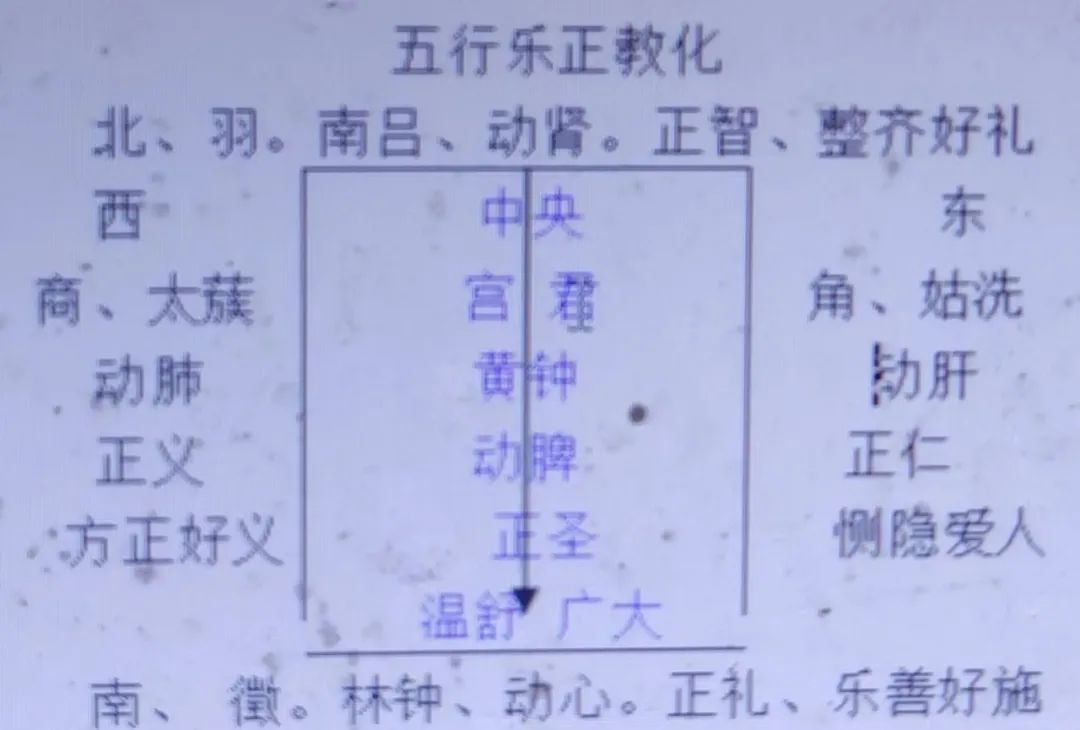 五行乐正教化
北、羽。南吕、动肾。正智、整齐好礼
西 中央 东
商、太蔟 宫 君 角、姑洗
动肺 黄钟 动肝
正义 动脾 正仁
方正好义 正圣 恻隐爱人
温舒 广大
南、徵。林钟、动心。正礼、乐善好施